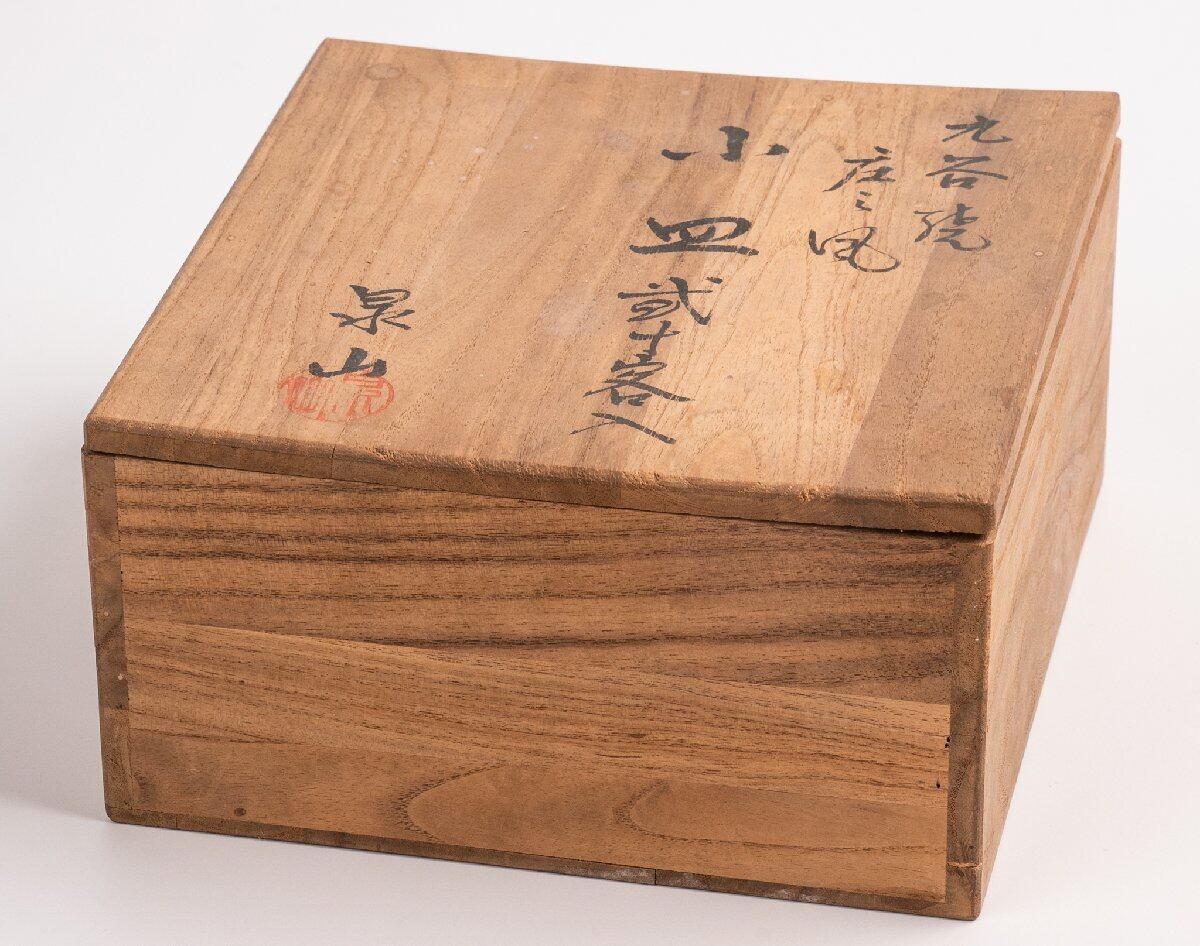 九谷焼
庄三風
小皿弐十客入
泉山